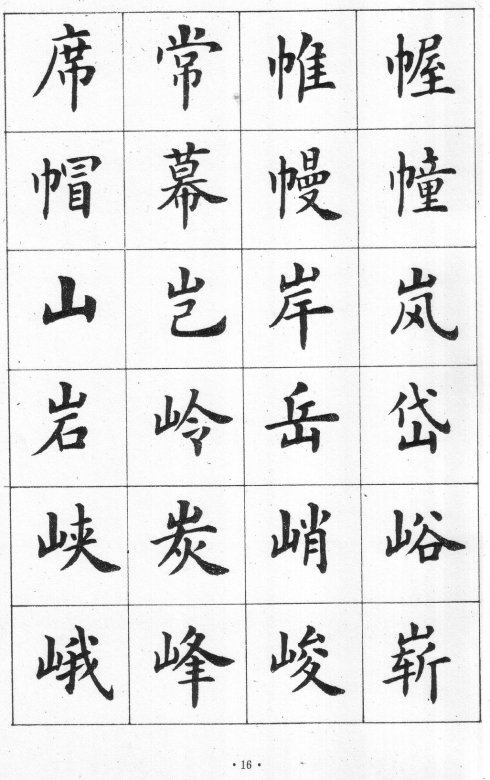 席常帷幄
帽幕幔幢
山岂岸岚
岩岭岳岱
峡炭峭峪
峨峰峻崭
·16·